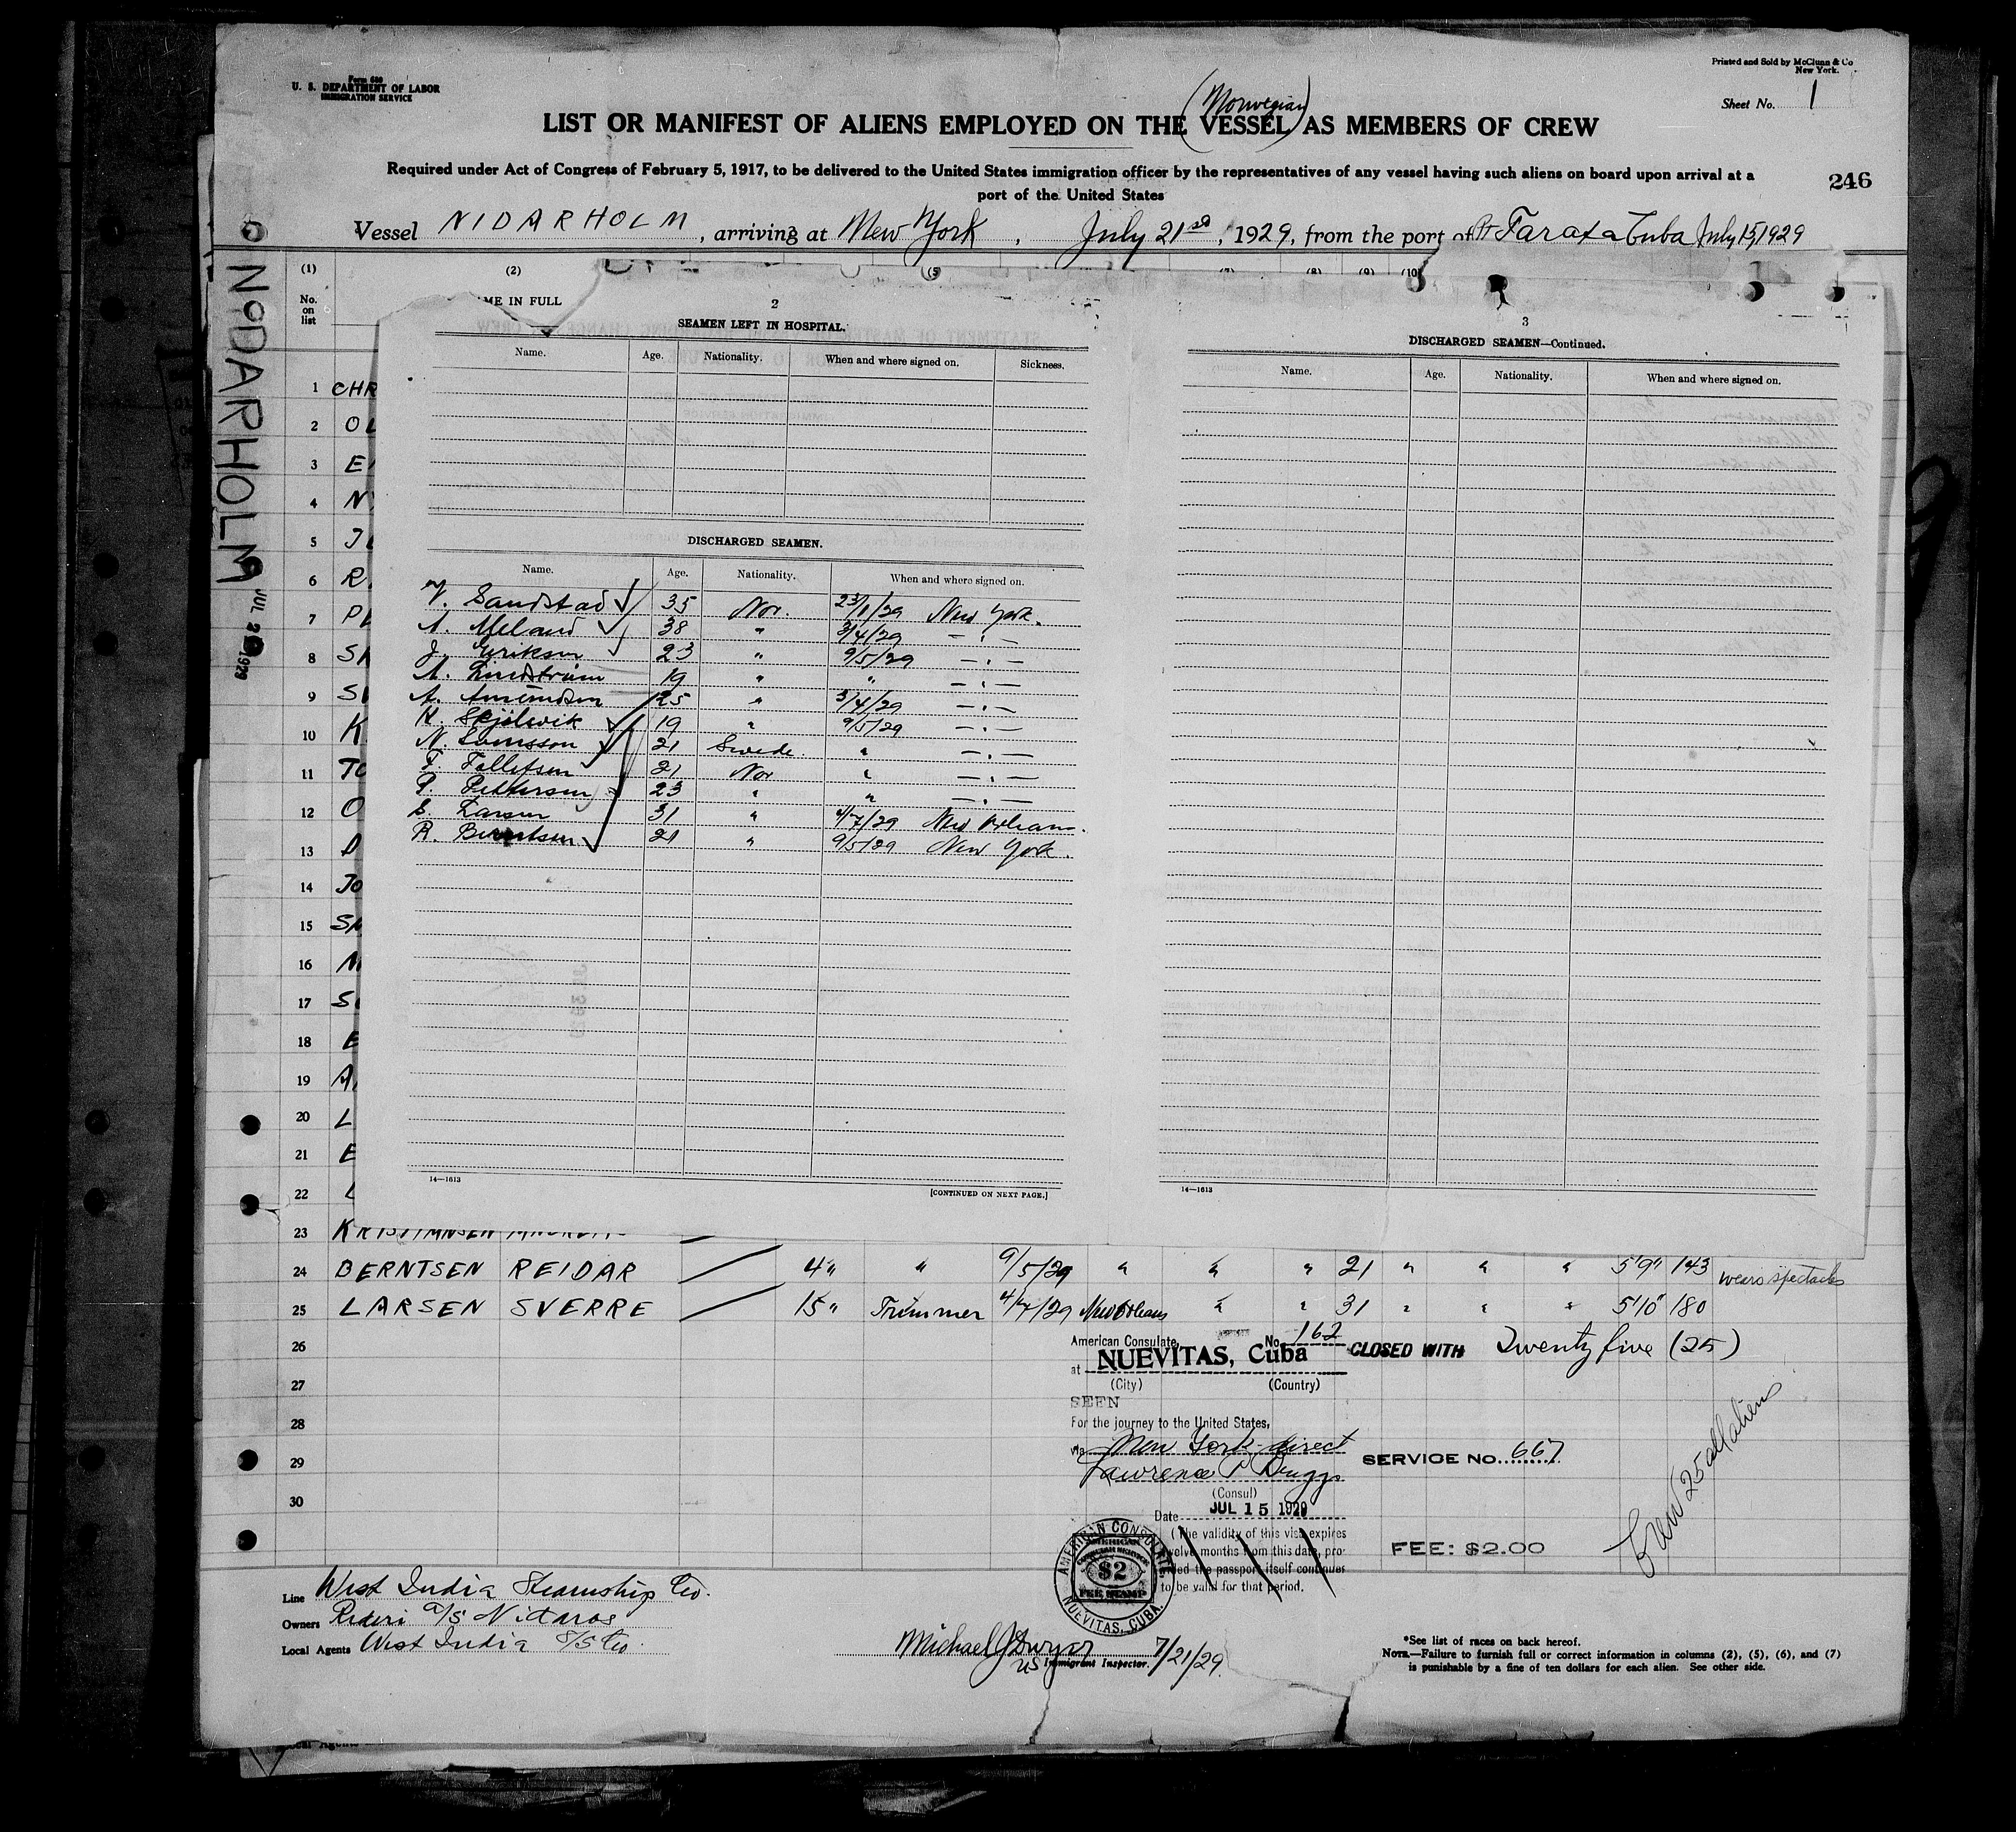 Form 680
U. S. DEPARTMENT OF LABOR
IMMIGRATION SERVICE
Printed and Sold by McClunn & Co
New York.
Sheet No. 1
(Norwegian)
LIST OR MANIFEST OF ALIENS EMPLOYED ON THE VESSEL AS MEMBERS OF CREW
Required under Act of Congress of February 5, 1917, to be delivered to the United States immigration officer by the representatives of any vessel having such aliens on board upon arrival at a
port of the United States
246
Vessel NIDARHOLM, arriving at New York, July 21st, 1929, from the port of Pt Tarafa Cuba July 15, 1929
NIDARHOLM
JUL 2 1929
(1) (2) (5 (7) (8) (9) (10
No. on list
ME IN FULL
2
SEAMEN LEFT IN HOSPITAL.
Name. Age. Nationality. When and where signed on. Sickness.
DISCHARGED SEAMEN.
Name. Age. Nationality. When and where signed on.
Sandstad 35 Nor. 23/1/29 New York.
A. Meland 38 " 3/4/29 — " —
J. Eriksen 23 " 9/5/29 — " —
A. Lindstrøm 19 " " — " —
A. Amundsen 25 " 3/4/29 — " —
H. Skjelvik 19 " 9/5/29 — " —
N. 21 Swede. " — " —
F. Tollefsen 21 Nor " — " —
P. Pettersen 23 " " — " —
S. Larsen 31 " 4/7/29 New Orleans.
R. Berntsen 21 " 9/5/29 New York.
14—1613
[CONTINUED ON NEXT PAGE.]
3
DISCHARGED SEAMEN—Continued.
Name. Age. Nationality. When and where signed on.
14—1613
1 CHR
2 OL
3 E
4 N
5 J
6 R
7 P
8 S
9 S
10 K
11 TO
12 O
13
14 JO
15 S
16
17 S
18 E
19 A
20 L
21 E
22 L
23 KRISTIANSEN
24 BERNTSEN REIDAR 4 " " 9/5/29 " " " 21 " " " 5'9" 143 wears spectacles
25 LARSEN SVERRE 15 " Trimmer 4/7/29 New Orleans " " 31 " " " 5'10" 180
26
27
28
29
30
American Consulate, No. 162
at NUEVITAS, Cuba
(City) (Country)
CLOSED WITH Twenty five (25)
SEEN
For the journey to the United States,
via New York direct
Lawrence P Briggs
(Consul)
SERVICE NO. 667
Date JUL 15 1929
(The validity of this visa expires
twelve months from this date, pro-
vided the passport itself continues
to be valid for that period.
FEE: $2.00
Crew 25 all aliens
AMERICAN CONSULATE
AMERICAN
$2
FEE STAMP
NUEVITAS, CUBA.
Line West India Steamship Co.
Owners Rederi a/s Nidaros
Local Agents West India S/S Co.
Michael J Dwyer 7/21/29
US Immigrant Inspector.
*See list of races on back hereof.
NOTE.—Failure to furnish full or correct information in columns (2), (5), (6), and (7)
is punishable by a fine of ten dollars for each alien. See other side.